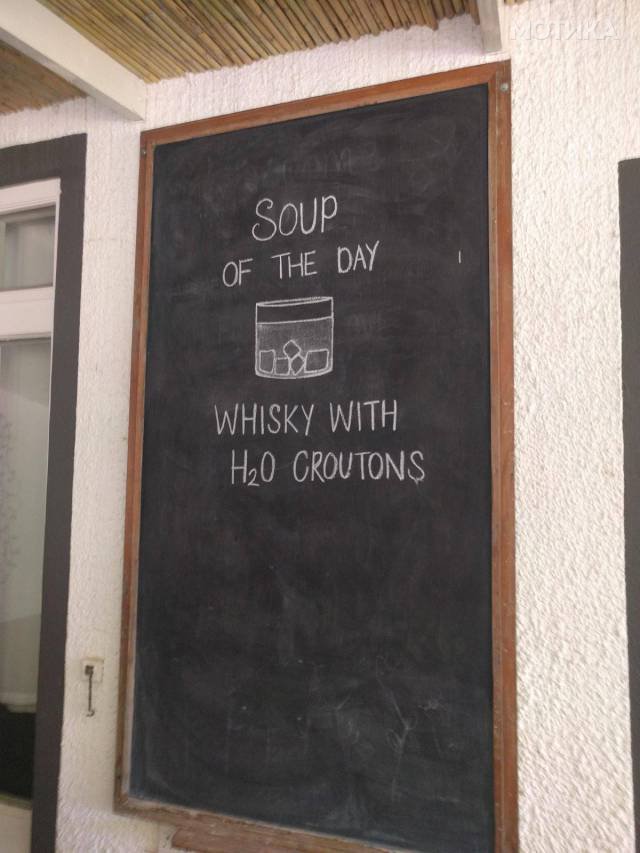 МОТИКА
SOUP
OF THE DAY
WHISKY WITH
H₂O CROUTONS